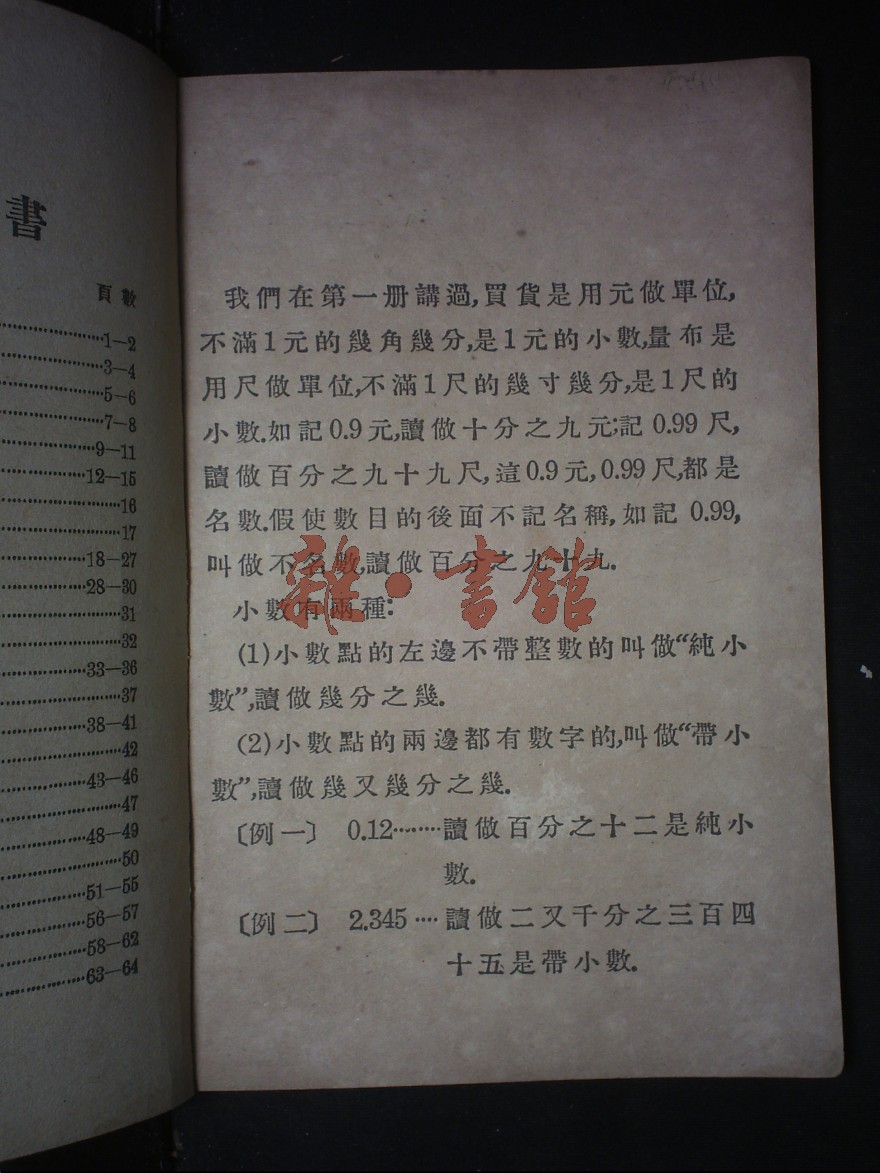 書
頁數
1—2
3—4
5—6
7—8
9—11
12—15
16
17
18—27
28—30
31
32
33—36
37
38—41
42
43—46
47
48—49
50
51—55
56—57
58—62
63—64
我們在第一册講過,買貨是用元做單位,
不滿1元的幾角幾分,是1元的小數,量布是
用尺做單位,不滿1尺的幾寸幾分,是1尺的
小數.如記0.9元,讀做十分之九元;記0.99尺,
讀做百分之九十九尺,這0.9元,0.99尺,都是
名數.假使數目的後面不記名稱,如記0.99,
叫做不名數,讀做百分之九十九.
小數有兩種:
(1)小數點的左邊不帶整數的叫做“純小
數”,讀做幾分之幾.
(2)小數點的兩邊都有數字的,叫做“帶小
數”,讀做幾又幾分之幾.
〔例一〕 0.12········讀做百分之十二是純小
數.
〔例二〕 2.345····讀做二又千分之三百四
十五是帶小數.
雜·書館